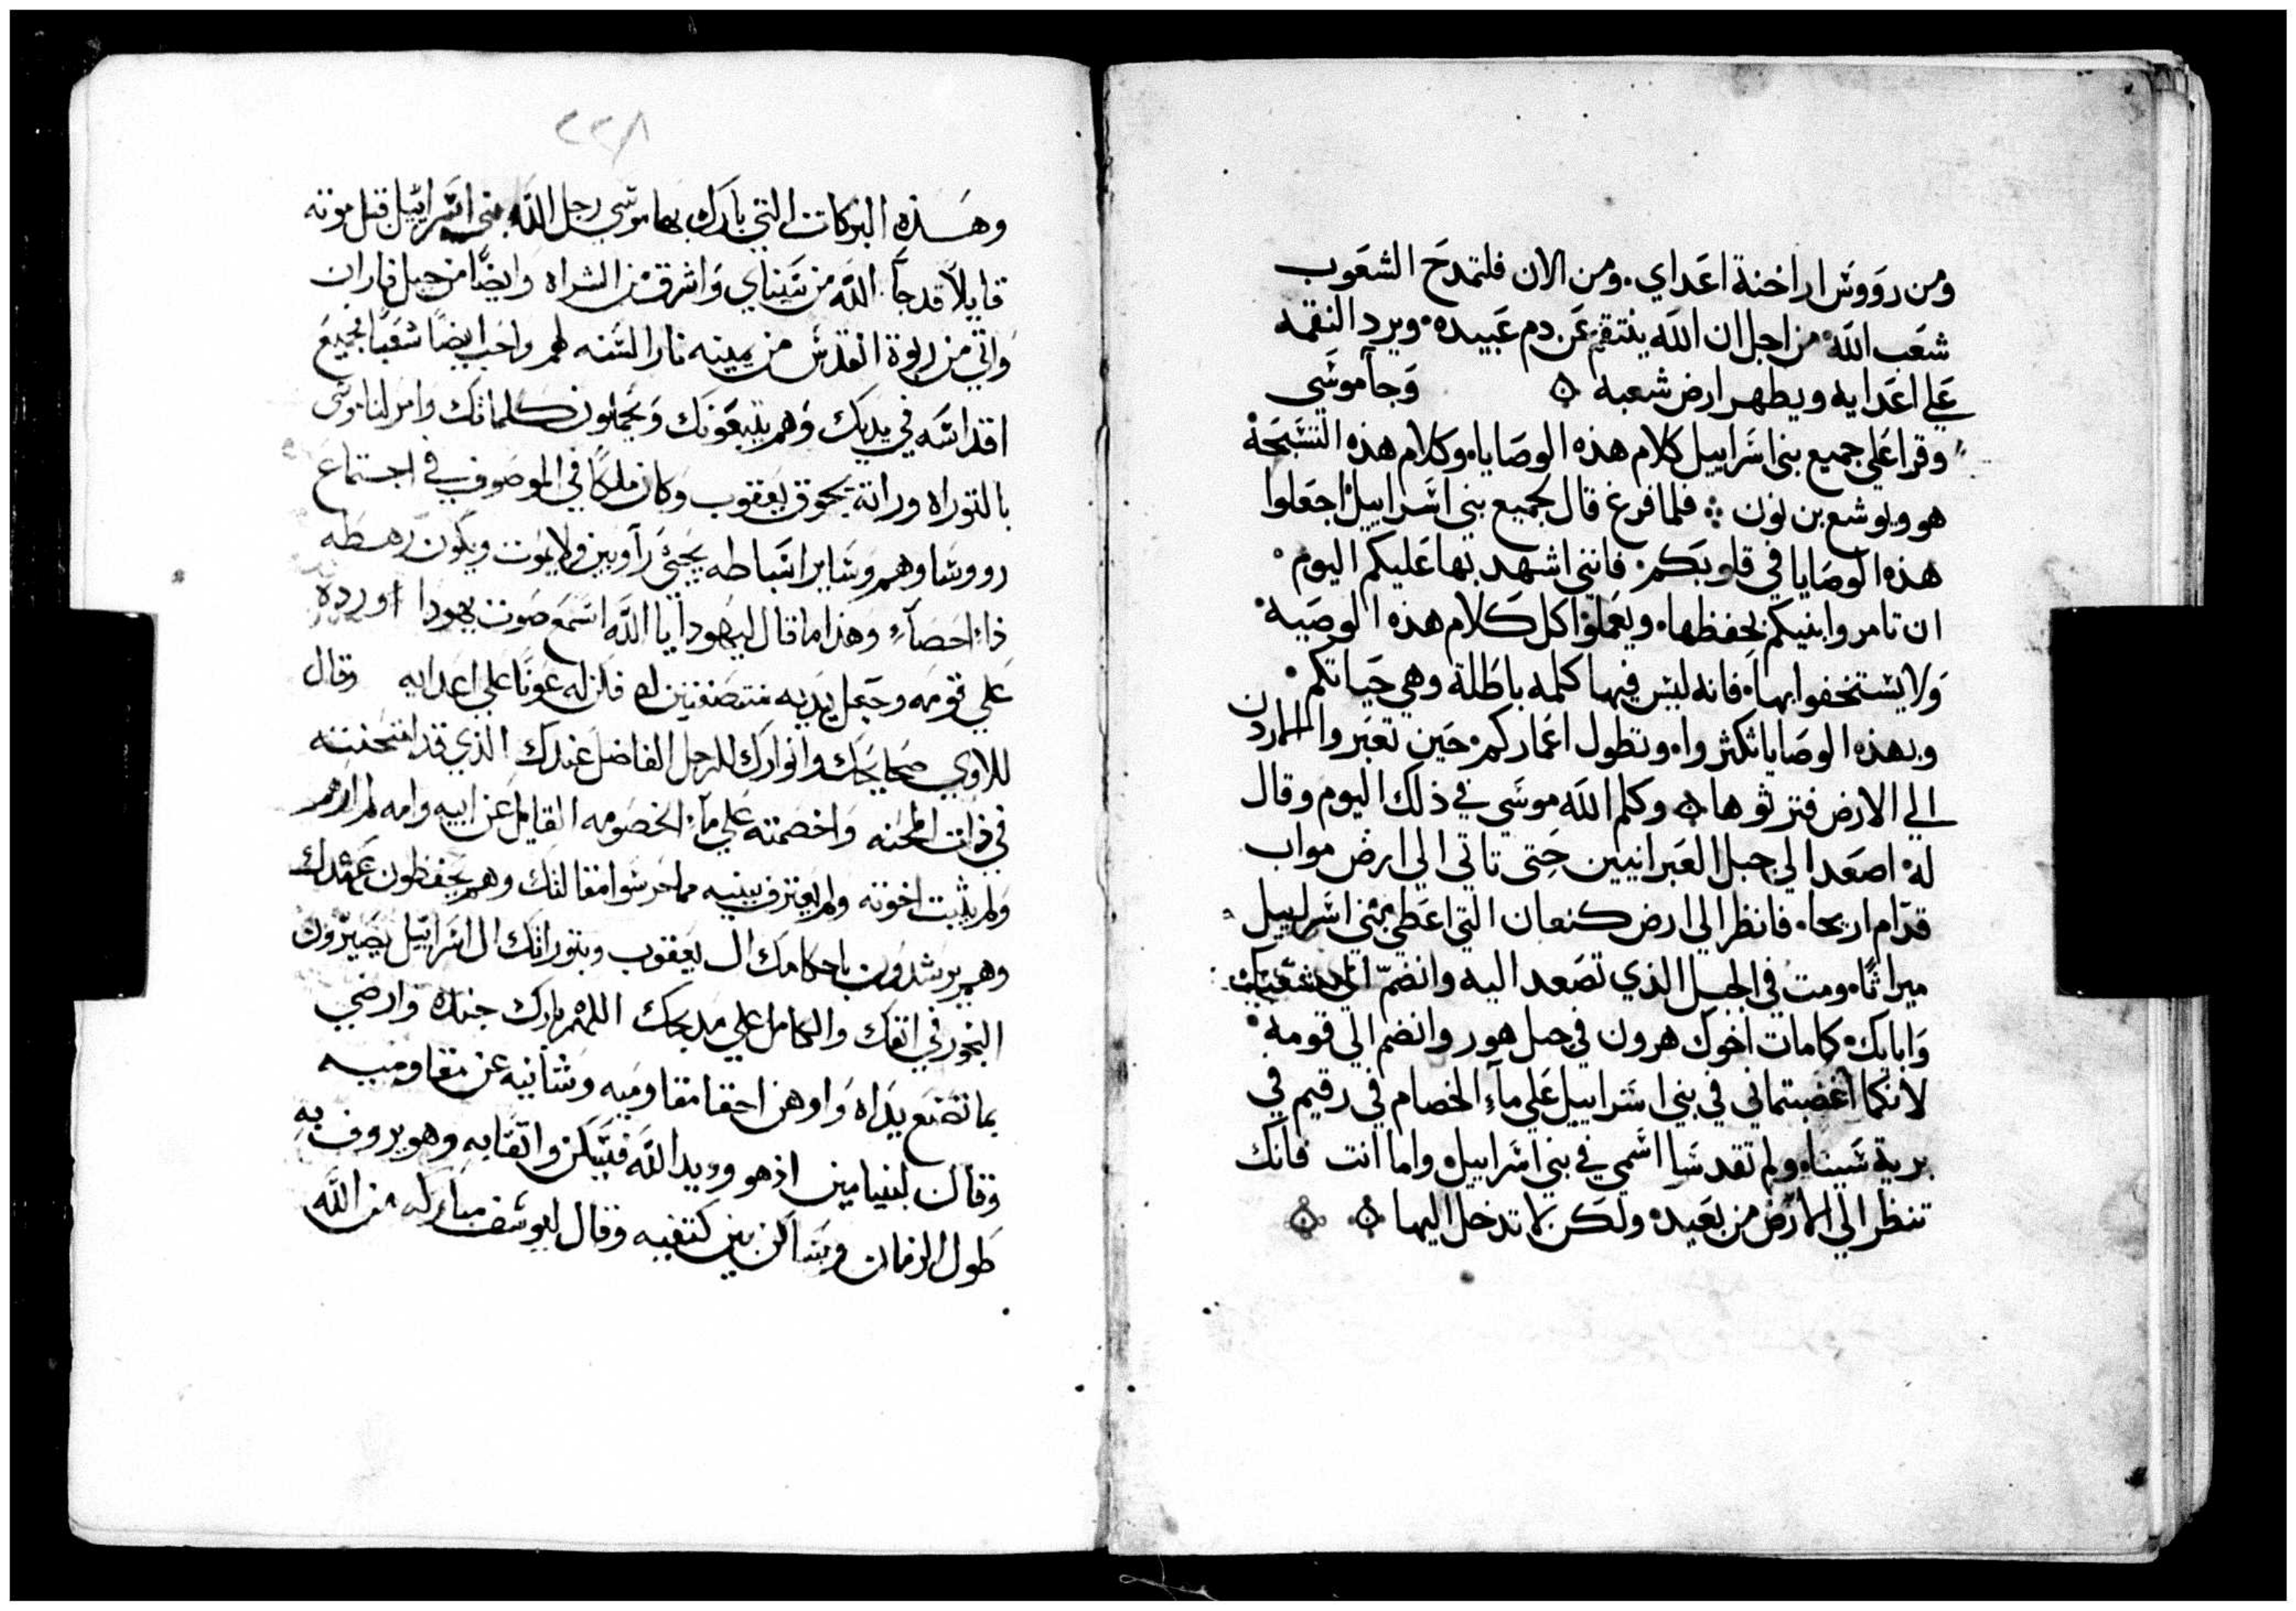 ومن رووس اراخنة اعداي. ومن الان فلتمدح الشعوب
شعب الله من اجل ان الله ينتقم عن دم عبيده. ويرد النقمه
علي اعدايه ويطهر ارض شعبه وجا موسي
وقرا علي جميع بني اسراييل كلام هذه الوصايا. وكلام هذه التسبحة
هو ويوشع بن نون فلما فرغ قال لجميع بني اسراييل اجعلوا
هذه الوصايا في قلوبكم. فانني اشهد بها عليكم اليوم.
ان تامروا بنيكم بحفظها. ويعملوا كل كلام هذه الوصيه.
ولا يستخفوا بها. فانه ليس فيها كلمه باطلة وهي حياتكم.
وبهذه الوصايا تكثروا. وتطول اعماركم. حين تعبروا الاردن
الي الارض فترثوها وكلم الله موسي في ذلك اليوم وقال
له اصعد الي جبل العبرانيين حتى تاتي الي ارض مواب
قدام اريحا. فانظر الي ارض كنعان التي اعطي بني اسراييل
ميراثا. ومت في الجبل الذي تصعد اليه وانضم الي شعبك
وابايك. كما مات اخوك هرون في جبل هور وانضم الي قومه.
لانكما اغضبتماني في بني اسراييل علي ماء الخصام في رقيم في
برية سينا. ولم تقدسا اسمي في بني اسراييل. واما انت فانك
تنظر الي الارض من بعيد. ولكن لا تدخل اليها
٢٢٨
وهذه البركات التي بارك بها موسي رجل الله بني اسراييل قبل موته
قايلا قد جا الله من سيناي واشرق من الشراه وايضا من جبل فاران
واتي من ربوة القدس من يمينه نار السنه لهم واحب ايضا شعبا فجميع
اقداسه في يديك وهم يتبعونك ويحملون كلماتك وامر لنا موسى
بالتوراه وراثة بحقوق يعقوب وكان ملكا في الموصوف في اجتماع
رووساوهم وساير اسباطه يحيي راوبين ولا يموت ويكون رهطه
ذا احصاء وهذا ما قال ليهودا يا الله اسمع صوت يهودا اورده
علي قومه وجعل يديه منتصفتين له فكن له عونا علي اعدايه وقال
للاوي صحاححك وانوارك للرجل الفاضل عندك الذي قد امتحنته
في ذات المحنه واخصمته علي ماء الخصومه القايل عن ابيه وامه لم ارهم
ولم يثبت اخوته ولم يعترف ببنيه مما حرسوا مقالتك وهم يحفظون عهدك
وهم يرشدون باحكامك ال يعقوب وبتوراتك ال اسراييل يصيرون
البخور في انفك والكامل علي مدبحك اللهم بارك جنده وارضي
بما تصنع يداه واوهن احقا مقاوميه وشانيه عن مقاوميه
وقال لبنيامين اذ هو وديد الله فيسكن واثقا به وهو يروف به
طول الزمان وساكن بين كتفيه وقال ليوسف مباركه من الله